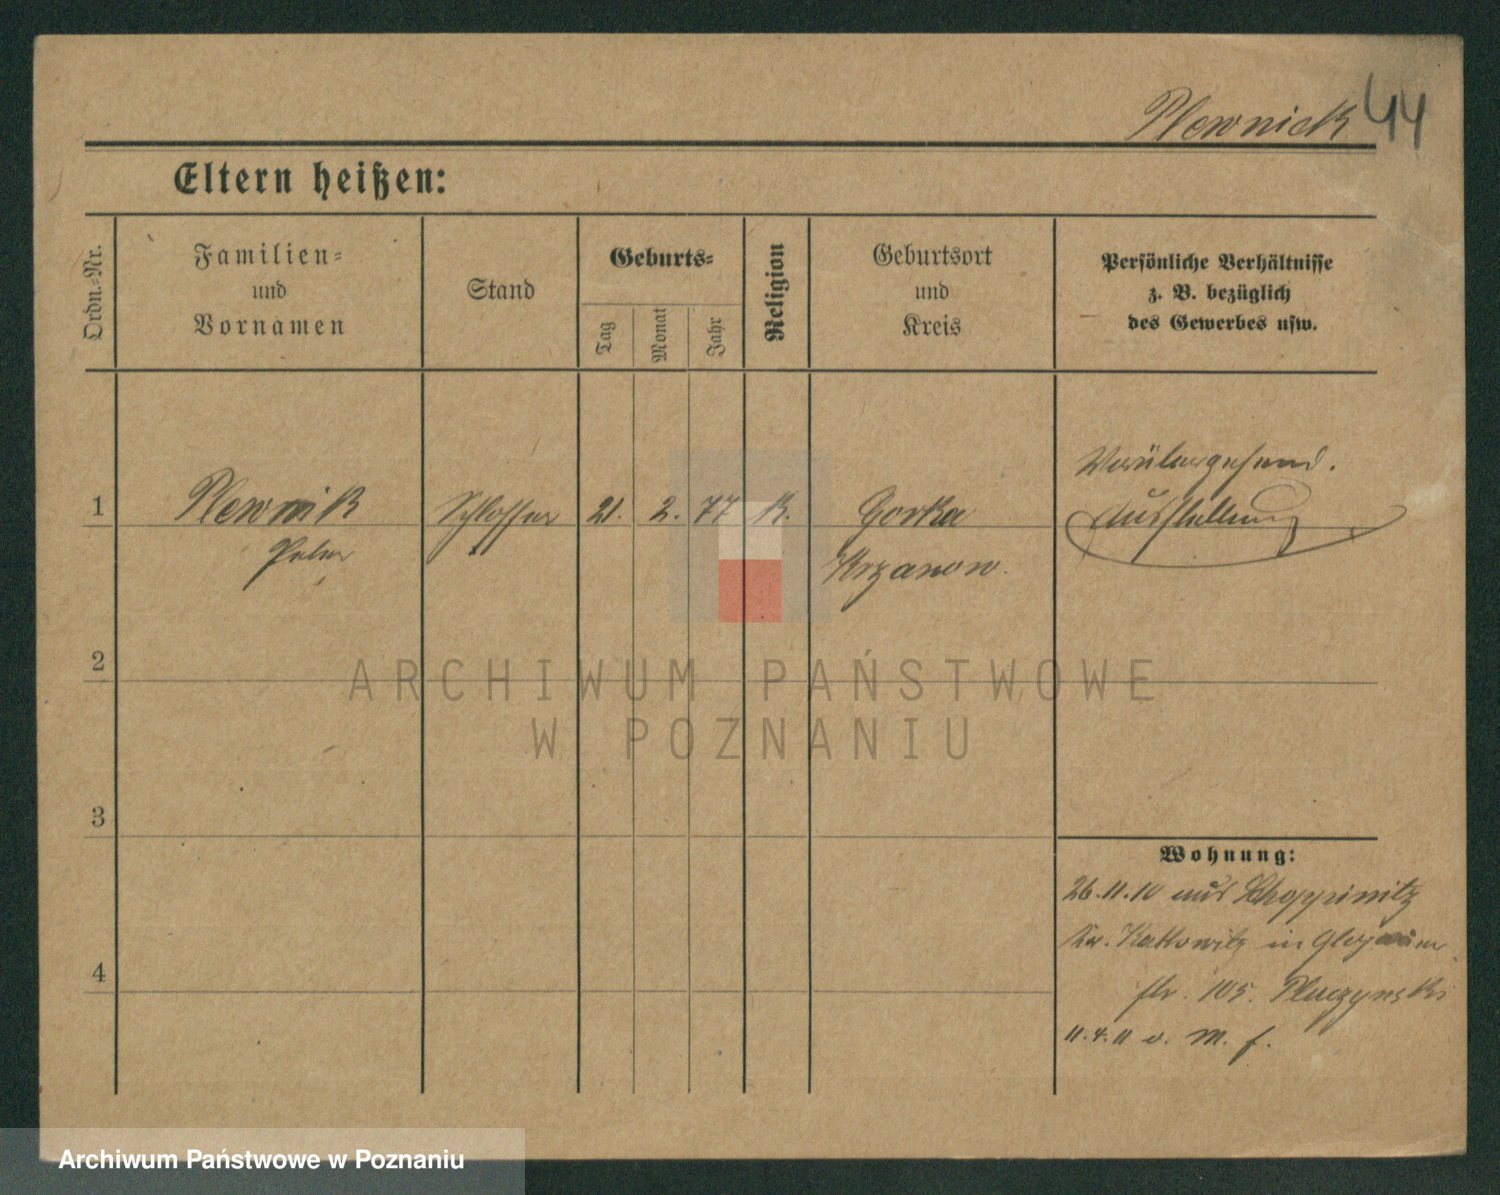 Plewnick 44
Eltern heißen:
Ordn.-Nr.
Familien-
und
Vornamen
Stand
Geburts-
Tag
Monat
Jahr
Religion
Geburtsort
und
Kreis
Persönliche Verhältnisse
z. B. bezüglich
des Gewerbes usw.
1
Plewnik
Peter
Schlosser
21. 2. 77
K.
Gorka
Krzanow.
Vorübergehend.
Ausstellung
2
ARCHIWUM PAŃSTWOWE
W POZNANIU
3
Wohnung:
26.11.10 aus Schoppinitz
Kr. Kattowitz in
4
str. 105.
11.4.11 v. M. f.
Archiwum Państwowe w Poznaniu